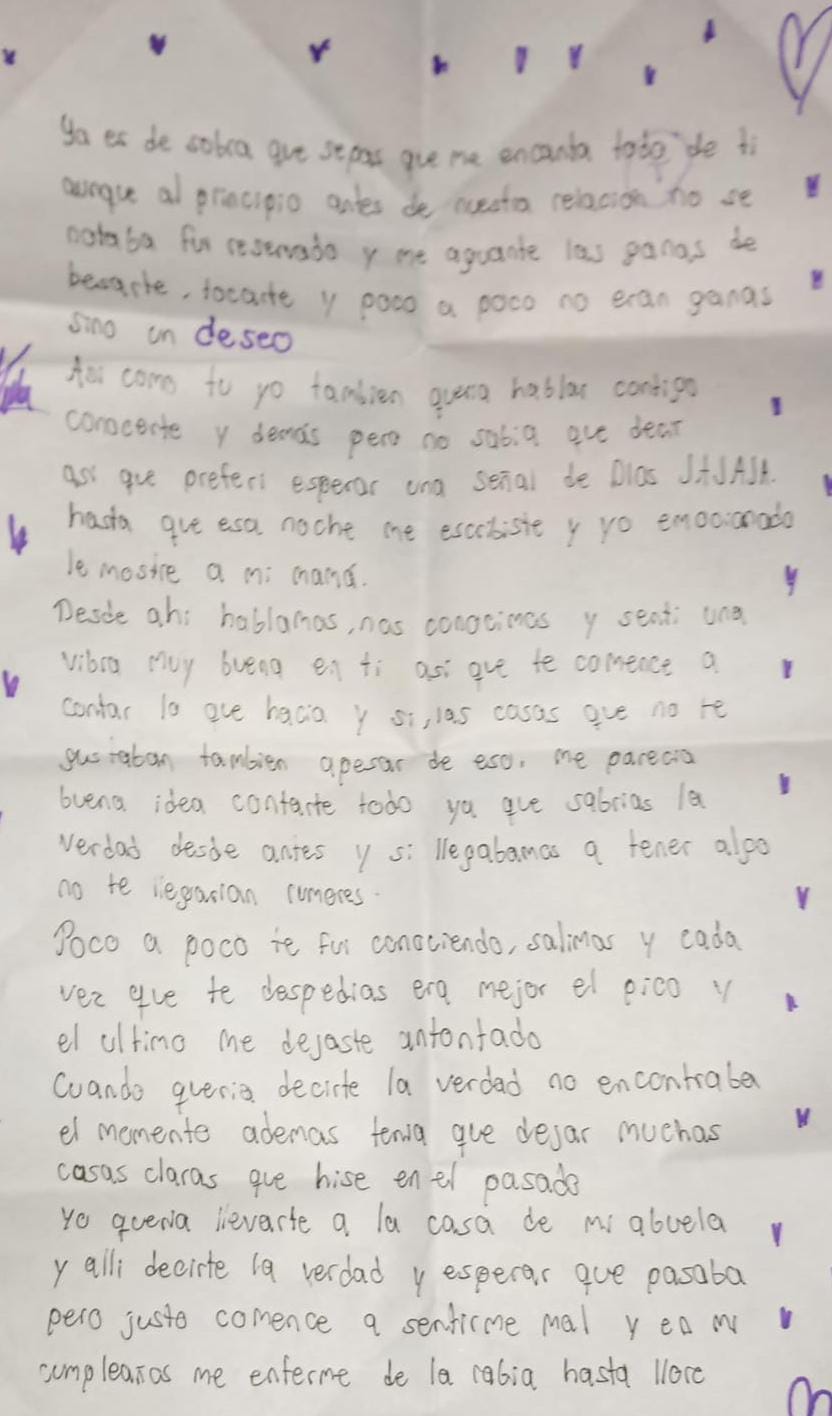 Ya es de sobra que sepas que me encanta todo de ti
aunque al principio antes de nuestra relación no se
notaba fui reservado y me aguante las ganas de
besarte, tocarte y poco a poco no eran ganas
sino un deseo
Asi como tu yo tambien queria hablar contigo
conocerte y demás pero no sabia que decir
asi que preferi esperar una señal de Dios JAJAJA.
hasta que esa noche me escribiste y yo emocionado
le mostre a mi mamá.
Desde ahi hablamos, nos conocimos y senti una
vibra muy buena en ti asi que te comence a
contar lo que hacia y si, las cosas que no te
gustaban tambien apesar de eso, me parecia
buena idea contarte todo ya que sabrias la
verdad desde antes y si llegabamos a tener algo
no te llegarian rumores.
Poco a poco te fui conociendo, salimos y cada
vez que te despedias era mejor el pico y
el ultimo me dejaste antontado
Cuando queria decirte la verdad no encontraba
el momento ademas tenia que dejar muchas
cosas claras que hise en el pasado
Yo queria llevarte a la casa de mi abuela
y alli decirte la verdad y esperar que pasaba
pero justo comence a sentirme mal y en mi
cumpleaños me enferme de la rabia hasta llore